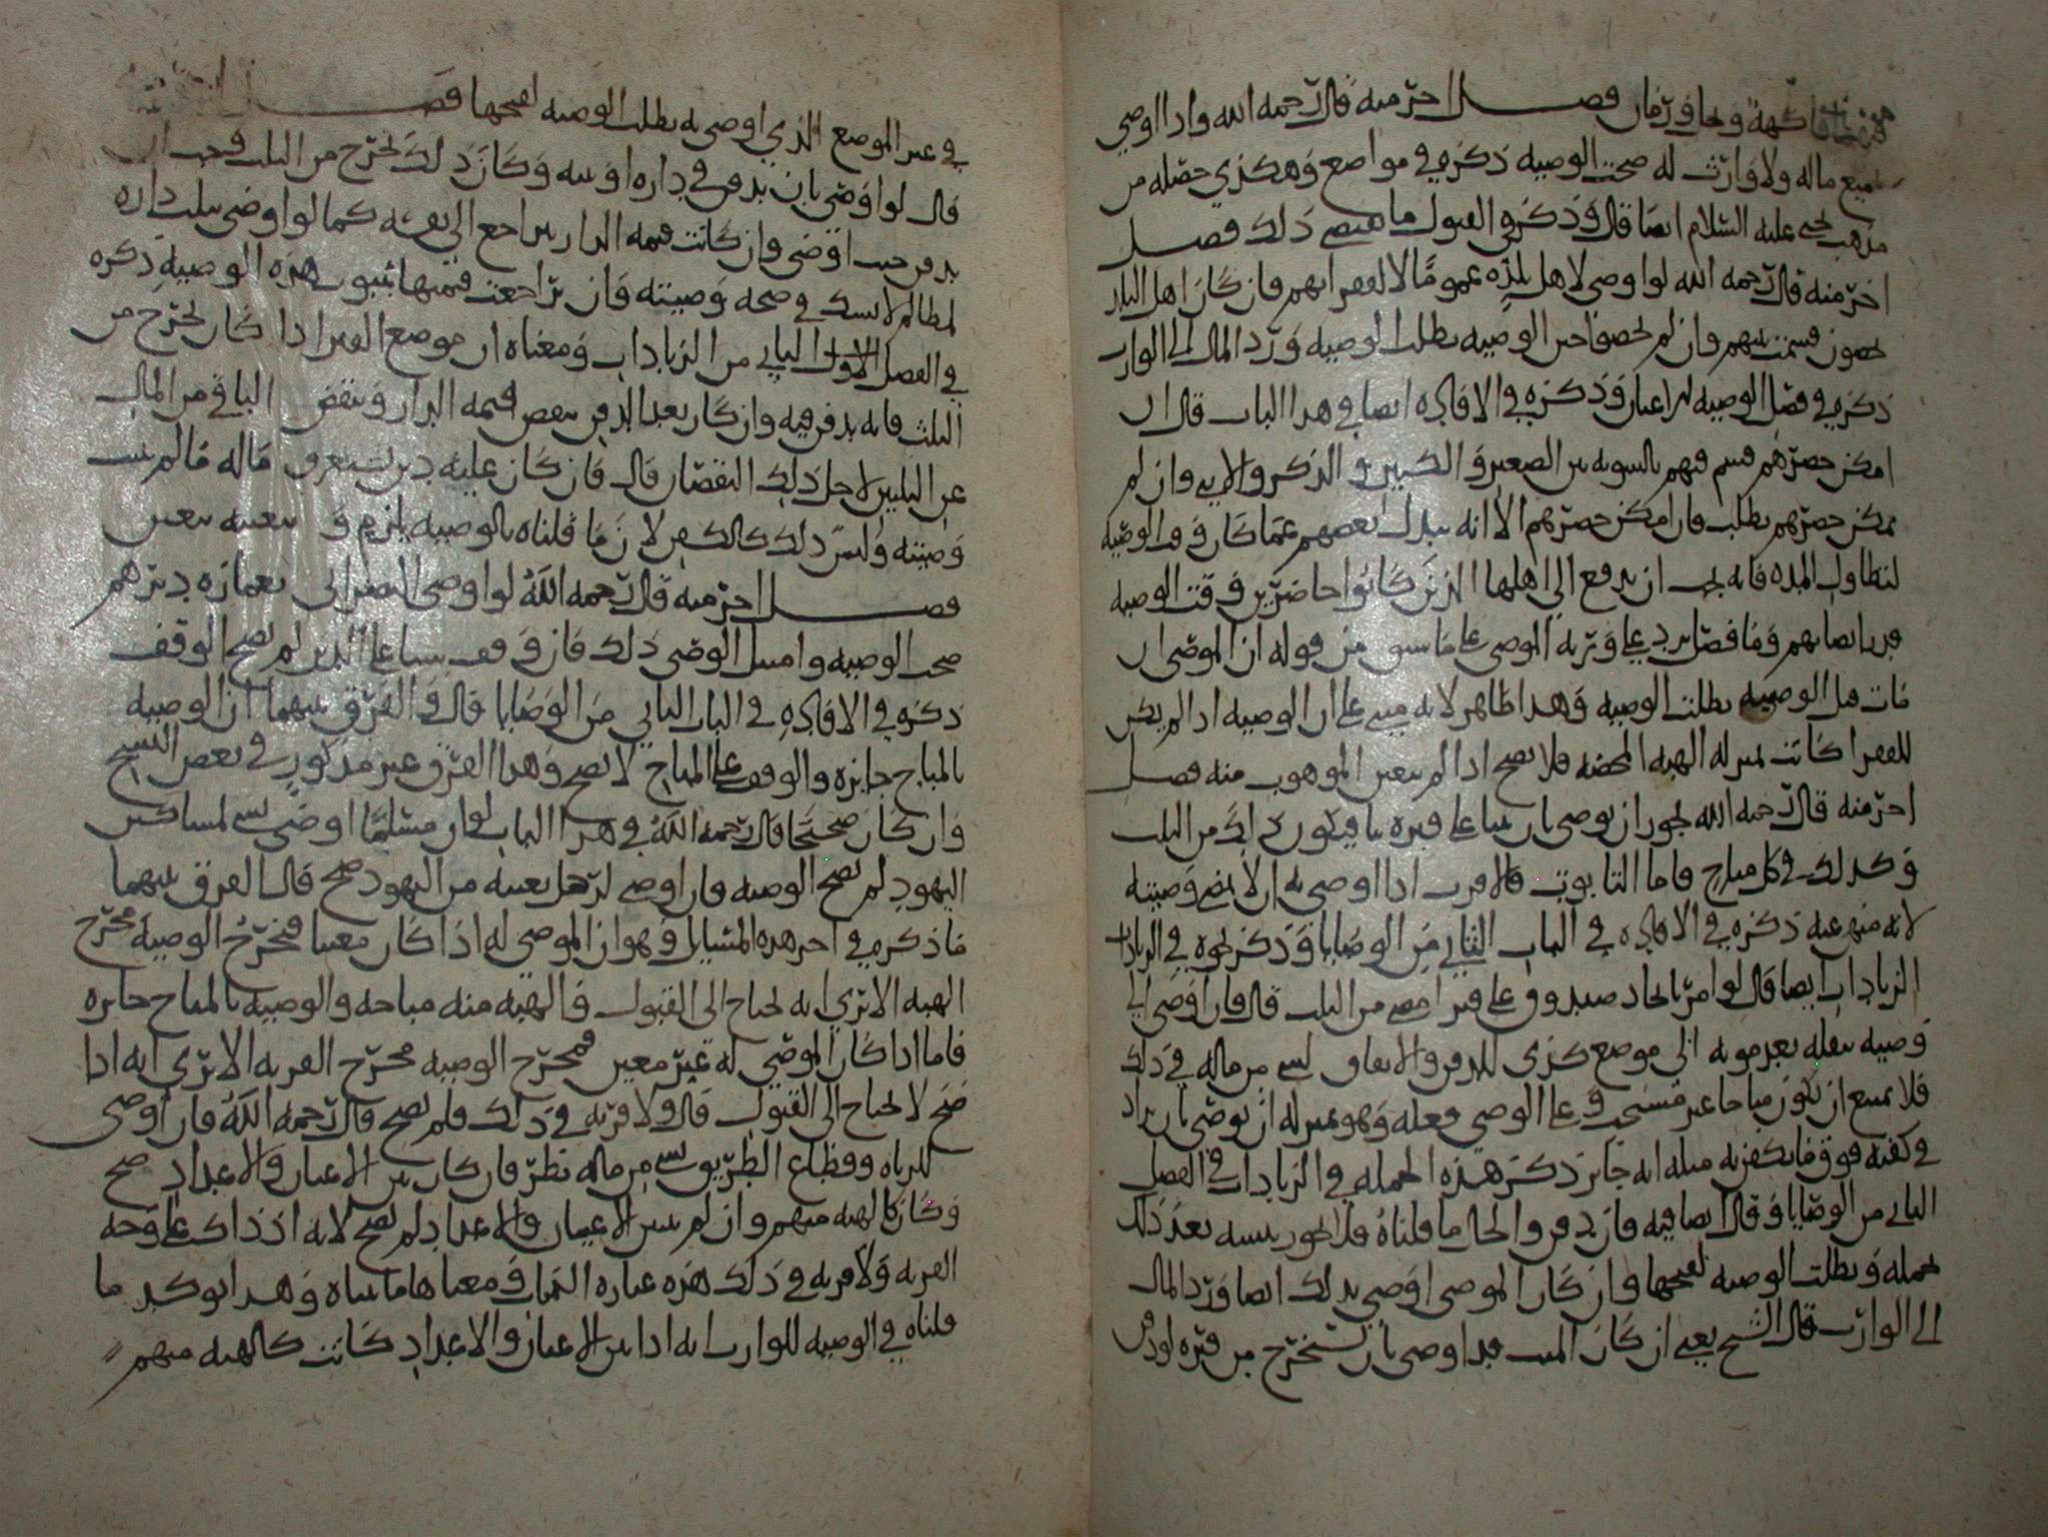 فاكهة ونحاو رمان فصل اخر منه قال رحمه الله واذا اوصى
بجميع ماله ولا وارث له صحت الوصيه ذكره في مواضع وهكذى حصله من
مذهب يحيى عليه السلام ايضا قال وذكر في القبول ما يقتضي ذلك فصل
اخر منه قال رحمه الله لو اوصى لاهل بلده عموما لا لفقرائهم فان كان اهل البلد
يحصون قسمت بينهم وان لم يحصوا حين الوصيه بطلت الوصيه ورد المال الى الوارث
ذكره في فصل الوصيه وذكره في الافاده ايضا في هذا الباب قال ان
امكن حصرهم قسم فيهم بالسويه بين الصغير والكبير والذكر والانثى وان لم
يمكن حصرهم بطلت فان امكن حصرهم الا انه تبدل بعضهم عما كان وقت الوصيه
لتطاول المده فانه يجب ان يدفع الى اهلها الذين كانوا حاضرين وقت الوصيه
قدر انصبائهم وما فضل يرد على ورثة الموصي على ما سبق من قوله ان الموصى ان
مات قبل الوصيه بطلت الوصيه وهذا ظاهر لانه مبني على ان الوصيه اذا لم يكن
للفقرا كانت بمنزله الهبه المحضه فلا يصح اذا لم يتعين الموهوب منه فصل
اخر منه قال رحمه الله يجوز ان يوصي بان يبنا على قبره بنا فيكون ذلك من الثلث
وكذلك في كل مباح فاما التابوت فالاقرب اذا اوصى به ان لا يمضى وصيته
لانه منهي عنه ذكره في الافاده في الباب الثاني من الوصايا وذكر نحوه في الزيادات
الزيادات ايضا قال لو امر باتخاذ صندوق على قبر امضي من الثلث قال فان اوصى الى
وصيه بنقله بعد موته الى موضع كذى للدفن والانفاق لشي من ماله في ذلك
فلا يمتنع ان يكون مباحا غير مستحب وعلى الوصي فعله وهو بمنزله ان يوصي بان يزاد
في كفنه فوق ما يكفن به مثله انه جايز ذكر هذه الجمله في الزيادات في الفصل
الثاني من الوصايا وقال ايضا فيه فان دفن والحال ما قلناه فلا يجوز نبشه بعد ذلك
بحمله وبطلت الوصيه لقبحها وان كان الموصي اوصى بذلك ايضا ورد المال
الى الوارث قال الشيخ يعني ان كان الميت قد اوصى بان يستخرج من قبره لو دفن
في غير الموضع الذي اوصى به بطلت الوصيه لقبحها فصل
قال لو اوصى بان يدفن في داره او بيته وكان ذلك يخرج من الثلث فيجب ان
يدفن حيث اوصى وان كانت قيمه الدار تتراجع الى كما لو اوصى بثلث داره
لمظالم لا يشك في صحه وصيته وان تراجعت قيمتها بثبوت هذه الوصيه ذكره
في الفصل الثاني من الزيادات ومعناه ان موضع القبر اذا كان يخرج من
الثلث فانه يدفن فيه وان كان بعد الدفن ينقص قيمه الدار وينقض الباقي من المال
عن الثلثين لاجل ذلك النقصان قال فان كان عليه دين يستغرق ماله فالم يثبت
وصيته وليس ذلك كالكفن لان ما قلناه بالوصيه يلزم و بتعينه يتعين
فصل اخر منه قال رحمه الله لو اوصى النصراني بعماره ديرهم
صحت الوصيه وامتثل الوصي ذلك فان وقف شيا على الدير لم يصح الوقف
ذكره في الافاده في الباب الثاني من الوصايا قال والفرق بينهما ان الوصيه
بالمباح جايزه والوقف على المباح لا يصح وهذا الفرق غير مذكور في بعض النسخ
وان كان صحيحا قال رحمه الله في هذا الباب لو ان مسلما اوصى بشي لمساكين
اليهود لم يصح الوصيه فان اوصى لرجل بعينه من اليهود صح قال الفرق بينهما
ما ذكره في اخر هذه المسايل وهو ان الموصى له اذا كان معينا فتخرج الوصيه مخرج
الهبه الا ترى انه يحتاج الى القبول فالهبه منه مباحه والوصيه بالمباح جايزه
فاما اذا كان الموصى له غير معين فتخرج الوصيه مخرج القربه الا ترى انه اذا
صح لا يحتاج الى القبول قال ولا قربه في ذلك فلم يصح قال رحمه الله فان اوصى
للزناه وقطاع الطريق بشي من ماله نظر فان كان بين الاعيان والاعداد صح
وكان كالهبه منهم وان لم يبين الاعيان والاعداد لم يصح لانه اذ ذاك على وجه
القربه ولا قربه في ذلك هذه عباره الكتاب ومعناها ما بيناه وهذا يوكد ما
قلناه في الوصيه للوارث انه اذا بين الاعيان والاعداد كانت كالهبه منهم